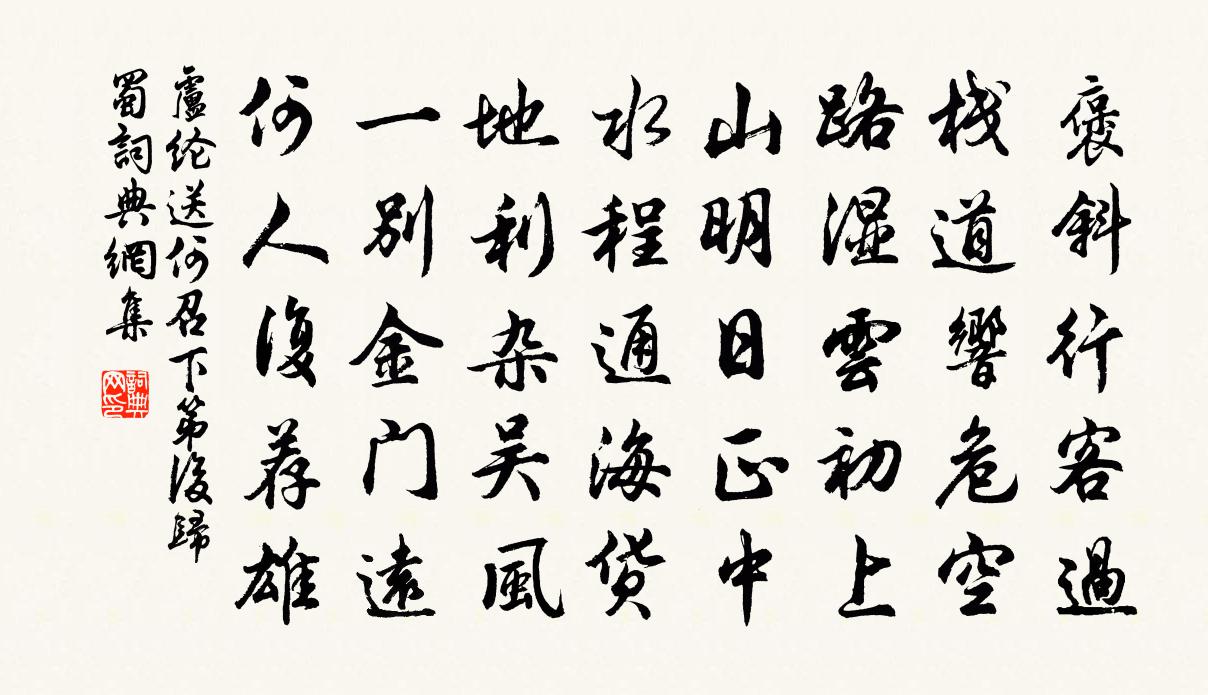 褒斜行客過
棧道響危空
路湿雲初上
山明日正中
水程通海货
地利杂吴風
一别金门遠
何人復荐雄
盧纶送何召下第後歸
蜀詞典網集
詞典
网印